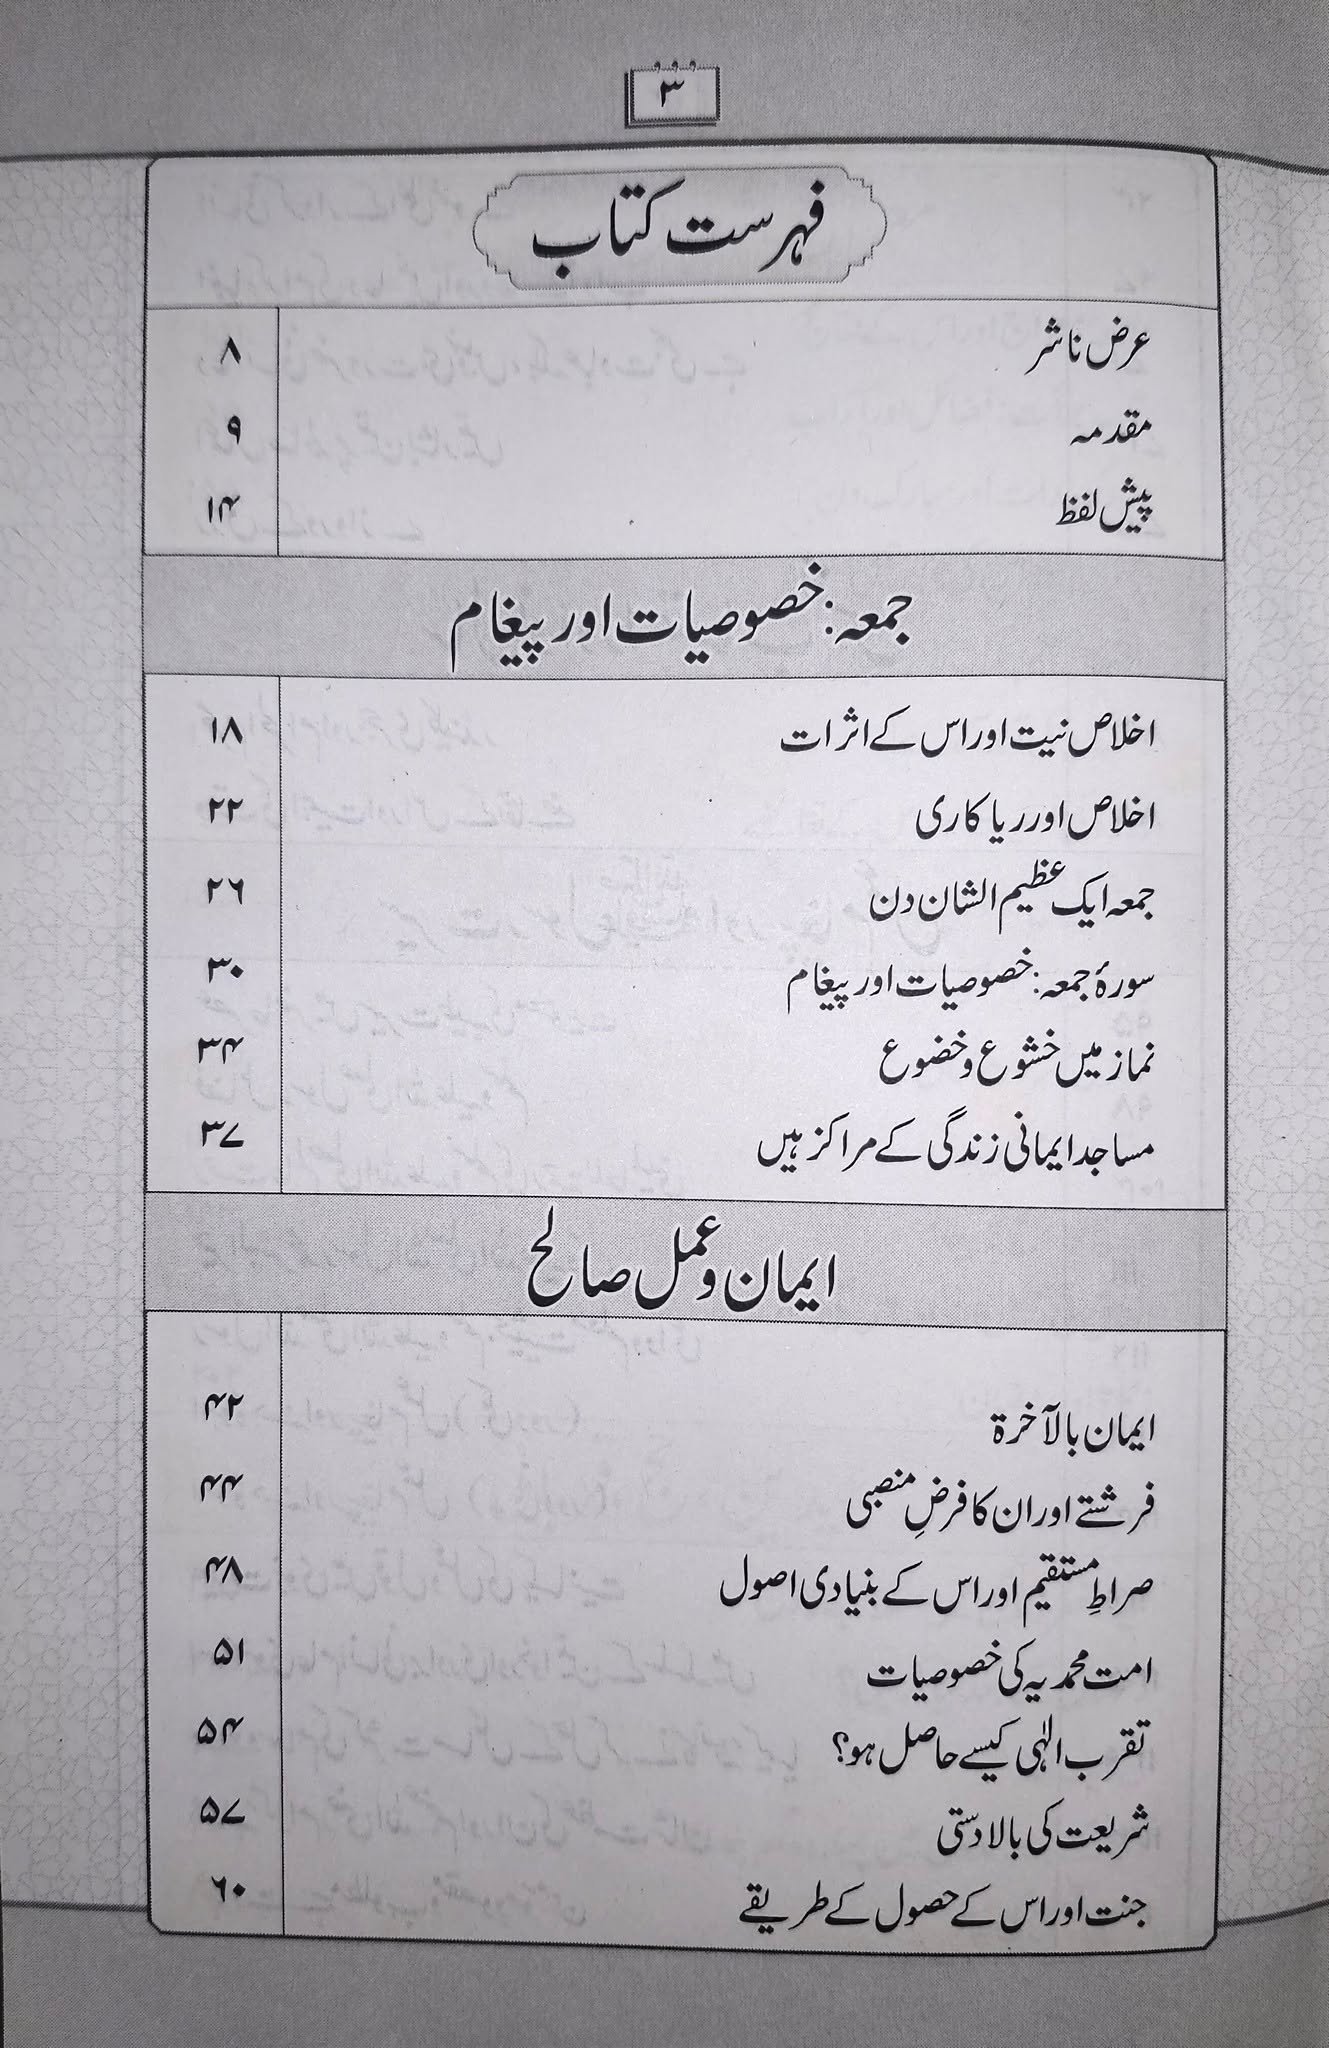 ۳
فہرست کتاب
عرض ناشر ۸
مقدمہ ۹
پیش لفظ ۱۴
جمعہ: خصوصیات اور پیغام
اخلاص نیت اور اس کے اثرات ۱۸
اخلاص اور ریاکاری ۲۲
جمعہ ایک عظیم الشان دن ۲۶
سورۂ جمعہ: خصوصیات اور پیغام ۳۰
نماز میں خشوع و خضوع ۳۴
مساجد ایمانی زندگی کے مراکز ہیں ۳۷
ایمان و عمل صالح
ایمان بالآخرۃ ۴۲
فرشتے اور ان کا فرضِ منصبی ۴۴
صراطِ مستقیم اور اس کے بنیادی اصول ۴۸
امت محمدیہ کی خصوصیات ۵۱
تقرب الٰہی کیسے حاصل ہو؟ ۵۴
شریعت کی بالادستی ۵۷
جنت اور اس کے حصول کے طریقے ۶۰